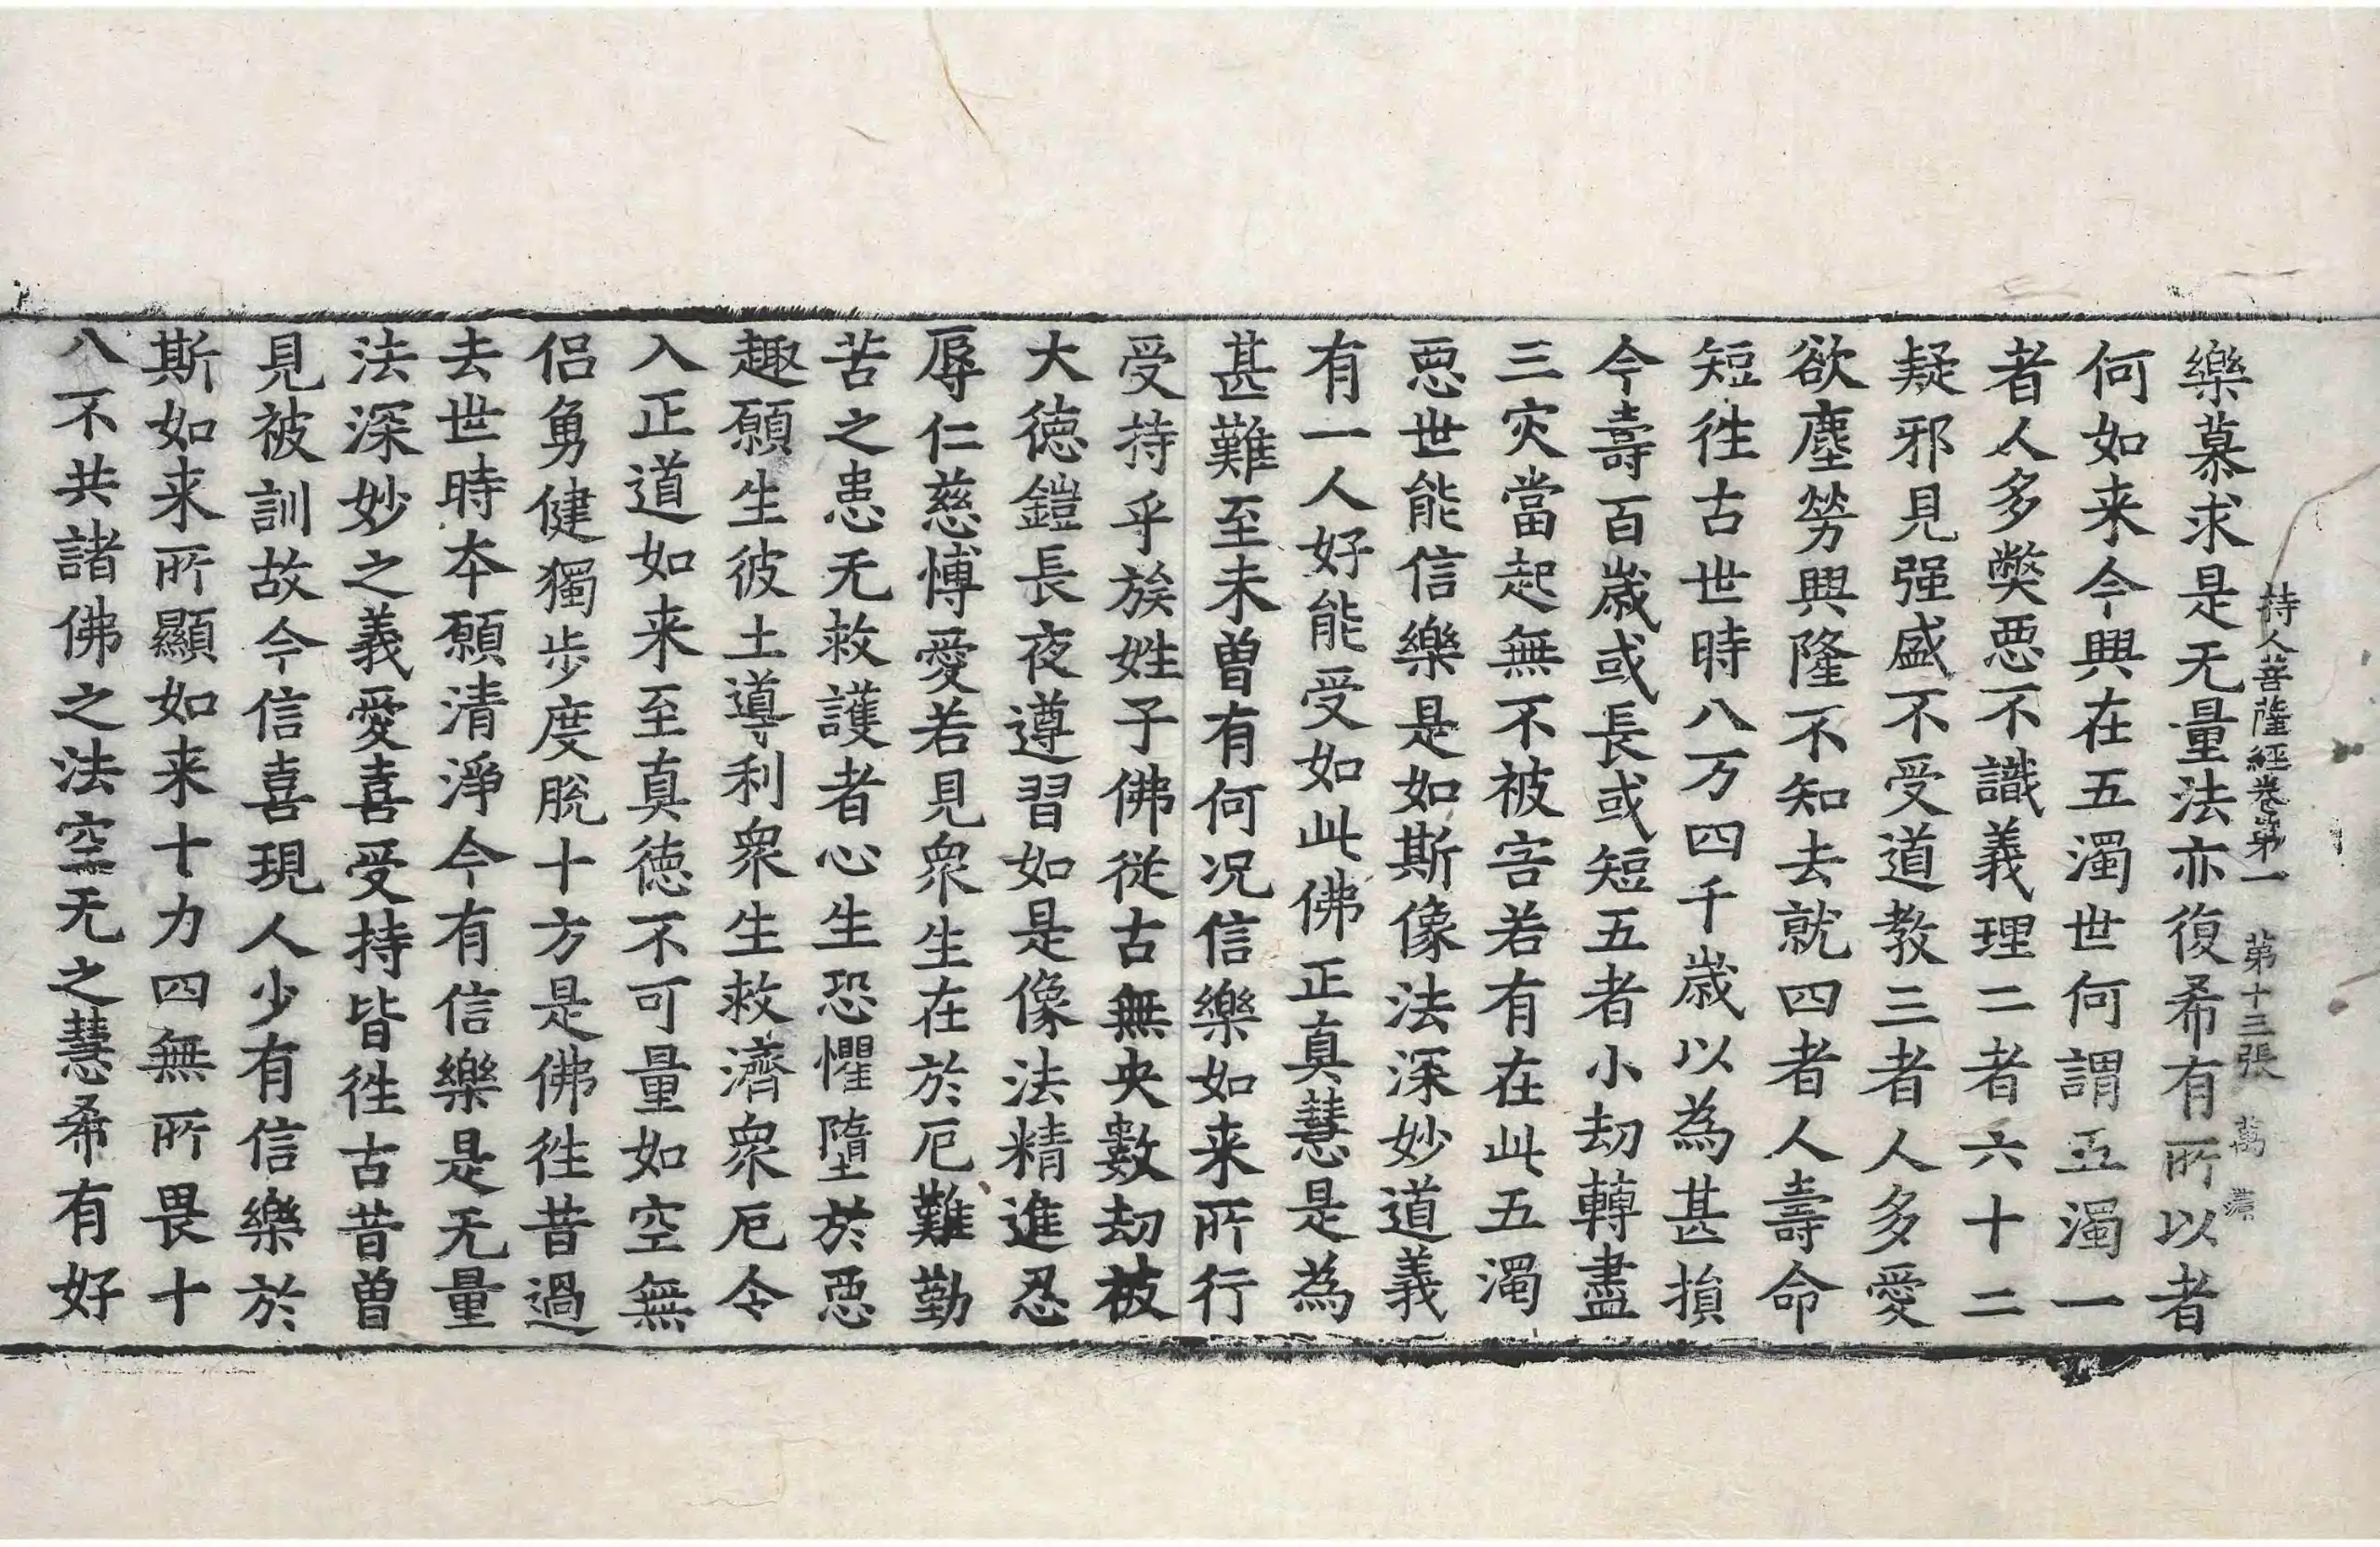 持人菩薩經卷第一 第十三張 萬
樂慕求是无量法亦復希有所以者
何如来今興在五濁世何謂五濁一
者人多弊惡不識義理二者六十二
疑邪見强盛不受道教三者人多愛
欲塵勞興隆不知去就四者人壽命
短徃古世時八万四千歲以為甚損
今壽百歲或長或短五者小劫轉盡
三灾當起無不被害若有在此五濁
惡世能信樂是如斯像法深妙道義
有一人好能受如此佛正真慧是為
甚難至未曽有何况信樂如来所行
受持乎族姓子佛從古無央數劫被
大德鎧長夜遵習如是像法精進忍
辱仁慈博愛若見衆生在於厄難勤
苦之患无救護者心生恐懼墮於惡
趣願生彼土導利衆生救濟衆厄令
入正道如来至真德不可量如空無
侣勇健獨步度脫十方是佛徃昔過
去世時本願清淨今有信樂是无量
法深妙之義愛喜受持皆徃古昔曽
見被訓故今信喜現人少有信樂於
斯如来所顯如来十力四無所畏十
八不共諸佛之法空无之慧希有好